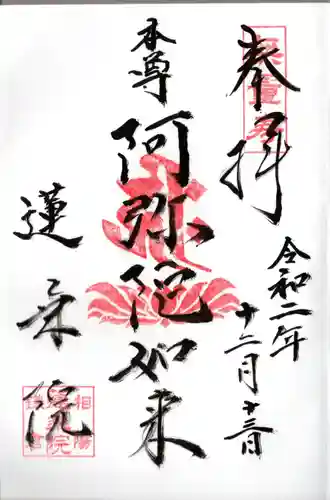 奉拝
令和二年
十二月十三日
本尊
阿弥陀如来
蓮乗院